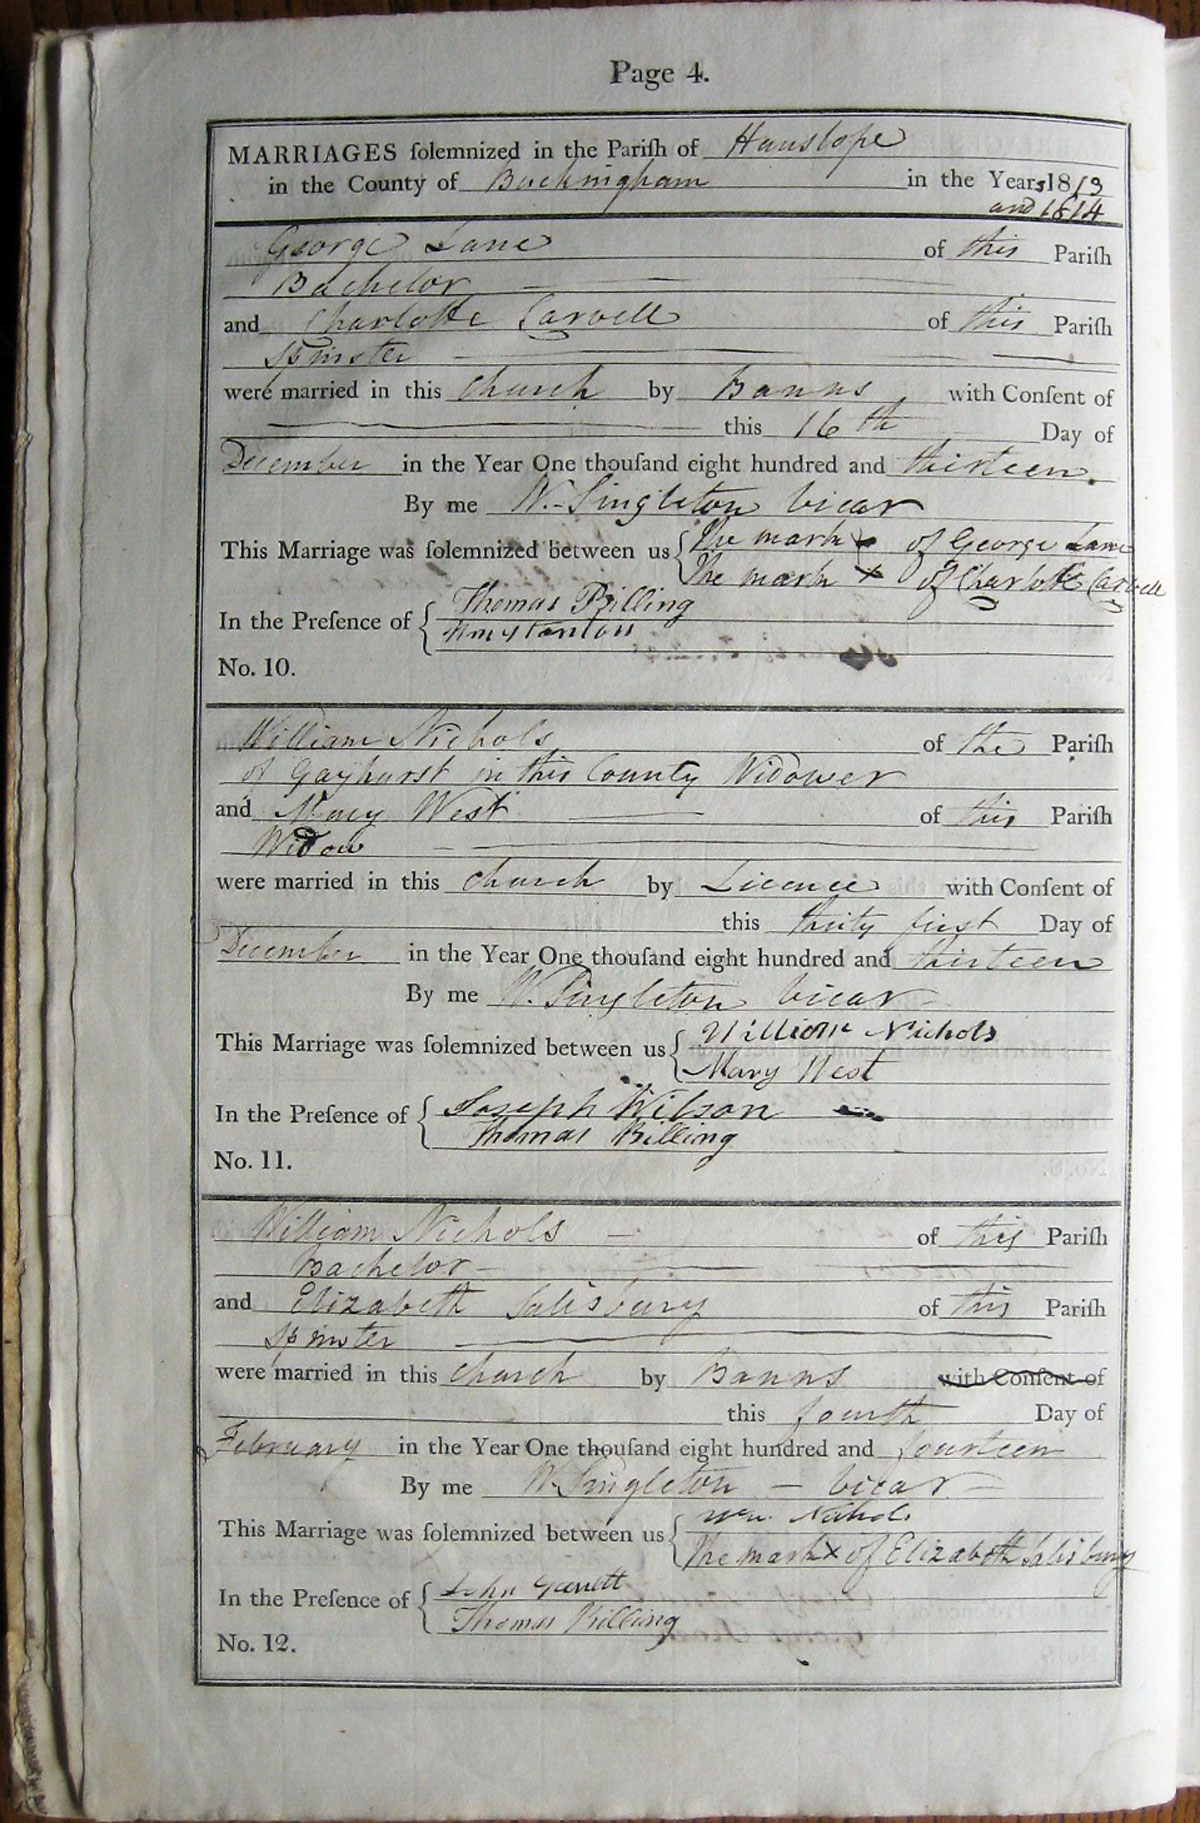 Page 4.
MARRIAGES ſolemnized in the Pariſh of Hanslope
in the County of Buckingham in the Years 1813
and 1814
George Lane of this Pariſh
Bachelor
and Charlotte Carvell of this Pariſh
Spinster
were married in this Church by Banns with Conſent of
this 16th Day of
December in the Year One thouſand eight hundred and thirteen
By me W. Singleton Vicar
This Marriage was ſolemnized between us { The mark x of George Lane
The mark x of Charlotte Carvell
In the Preſence of { Thomas Billing
Wm Stanton
No. 10.
William Nichols of the Pariſh
of Gayhurst in this County Widower
and Mary West of this Pariſh
Widow
were married in this Church by Licence with Conſent of
this thirty first Day of
December in the Year One thouſand eight hundred and thirteen
By me W. Singleton Vicar
This Marriage was ſolemnized between us { William Nichols
Mary West
In the Preſence of { Joseph Wilson
Thomas Billing
No. 11.
William Nichols of this Pariſh
Bachelor
and Elizabeth Salisbury of this Pariſh
Spinster
were married in this Church by Banns with Conſent of
this fourth Day of
February in the Year One thouſand eight hundred and fourteen
By me W. Singleton Vicar
This Marriage was ſolemnized between us { Wm Nichols
The mark x of Elizabeth Salisbury
In the Preſence of { John Garrett
Thomas Billing
No. 12.